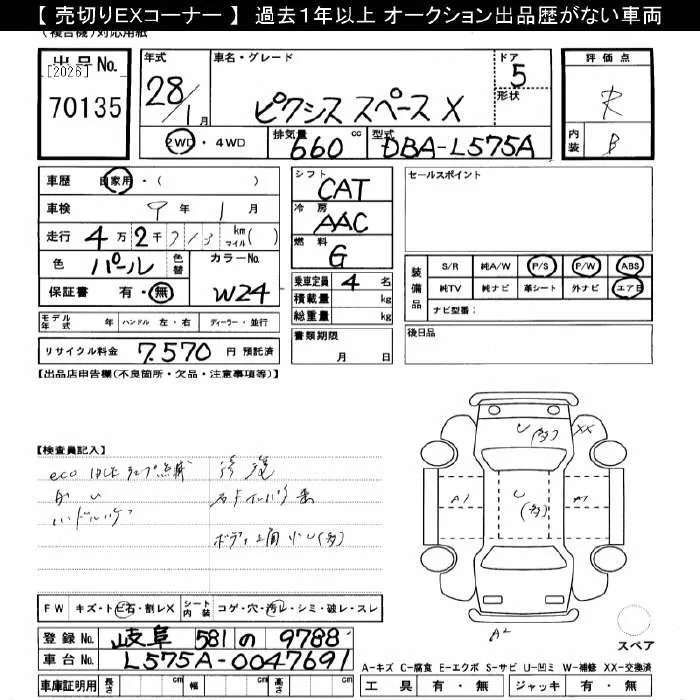 【 売切りEXコーナー 】 過去１年以上 オークション出品歴がない車両
(複合機)対応用紙
出品No.
[2026]
70135
年式
28/1月
車名・グレード
ピクシス スペース X
ドア
5
形状
評価点
内装
B
2WD・4WD
排気量
660 cc
型式
DBA-L575A
車歴 自家用・( )
車検 9 年 1 月
走行 4万2千713 km マイル( )
色 パール 色替
カラーNo.
W24
保証書 有・無
シフト
CAT
冷房
AAC
燃料
G
乗車定員 4 名
積載量 kg
総重量 kg
セールスポイント
装備品
S/R 純A/W P/S P/W ABS
純TV 純ナビ 革シート 外ナビ エアB
ナビ型番:
モデル年式 年 ハンドル 左・右 ディーラー・並行
リサイクル料金 7,570 円 預託済
書類期限
月 日
後日品
【出品店申告欄(不良箇所・欠品・注意事項等)】
【検査員記入】
eco
ハンドル
ボディ上面小U(多)
U(多)
XX
A1
U(多)
A1
A2
スペア
FW キズ・トビ石・割レX シート内装 コゲ・穴・汚レ・シミ・破レ・スレ
登録No. 岐阜 581 の 9788
車台No. L575A-0047691
車庫証明用 長さ cm 幅 cm 高さ cm
A-キズ C-腐食 E-エクボ S-サビ U-凹ミ W-補修 XX-交換済
工具 有・無 ジャッキ 有・無